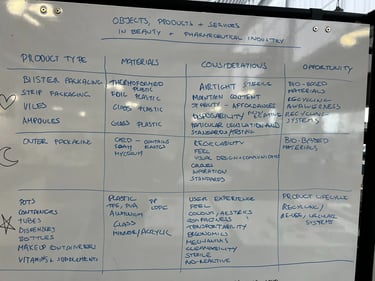 OBJECTS, PRODUCTS + SERVICES
IN BEAUTY + PHARMACEUTICAL INDUSTRY
PRODUCT TYPE
MATERIALS
CONSIDERATIONS
OPPORTUNITY
BLISTER PACKAGING
STRIP PACKAGING
VILES
AMPOULES
THERMOFORMED
PLASTIC
FOIL PLASTIC
GLASS PLASTIC
GLASS PLASTIC
AIRTIGHT STERILE
MAINTAIN CONTENT
STABILITY - AFFORDANCES
DISPOSABILITY
LEGISLATION AND
STANDARDS
BIO-BASED
MATERIALS
RECYCLING
AWARENESS
RECYCLING
SYSTEMS
OUTER PACKAGING
CARD - CONTAINS
MYCELIUM
RECYCLABILITY
FEEL
VISUAL DESIGN + COMMUNICATIONS
COLOURS
STANDARDS
BIO-BASED
MATERIALS
POTS
CONTAINERS
TUBES
DISPENSERS
BOTTLES
MAKEUP CONTAINERS
VITAMINS + SUPPLEMENTS
PLASTIC PP
ALUMINIUM
GLASS
MIRROR/ACRYLIC
USER EXPERIENCE
FEEL
COLOUR/AESTHETICS
COMPACTNESS
TRANSPORTABILITY
ERGONOMICS
MECHANISMS
CLEANABILITY
STERILE
NON-REACTIVE
PRODUCT LIFECYCLE
RECYCLING/
SYSTEMS